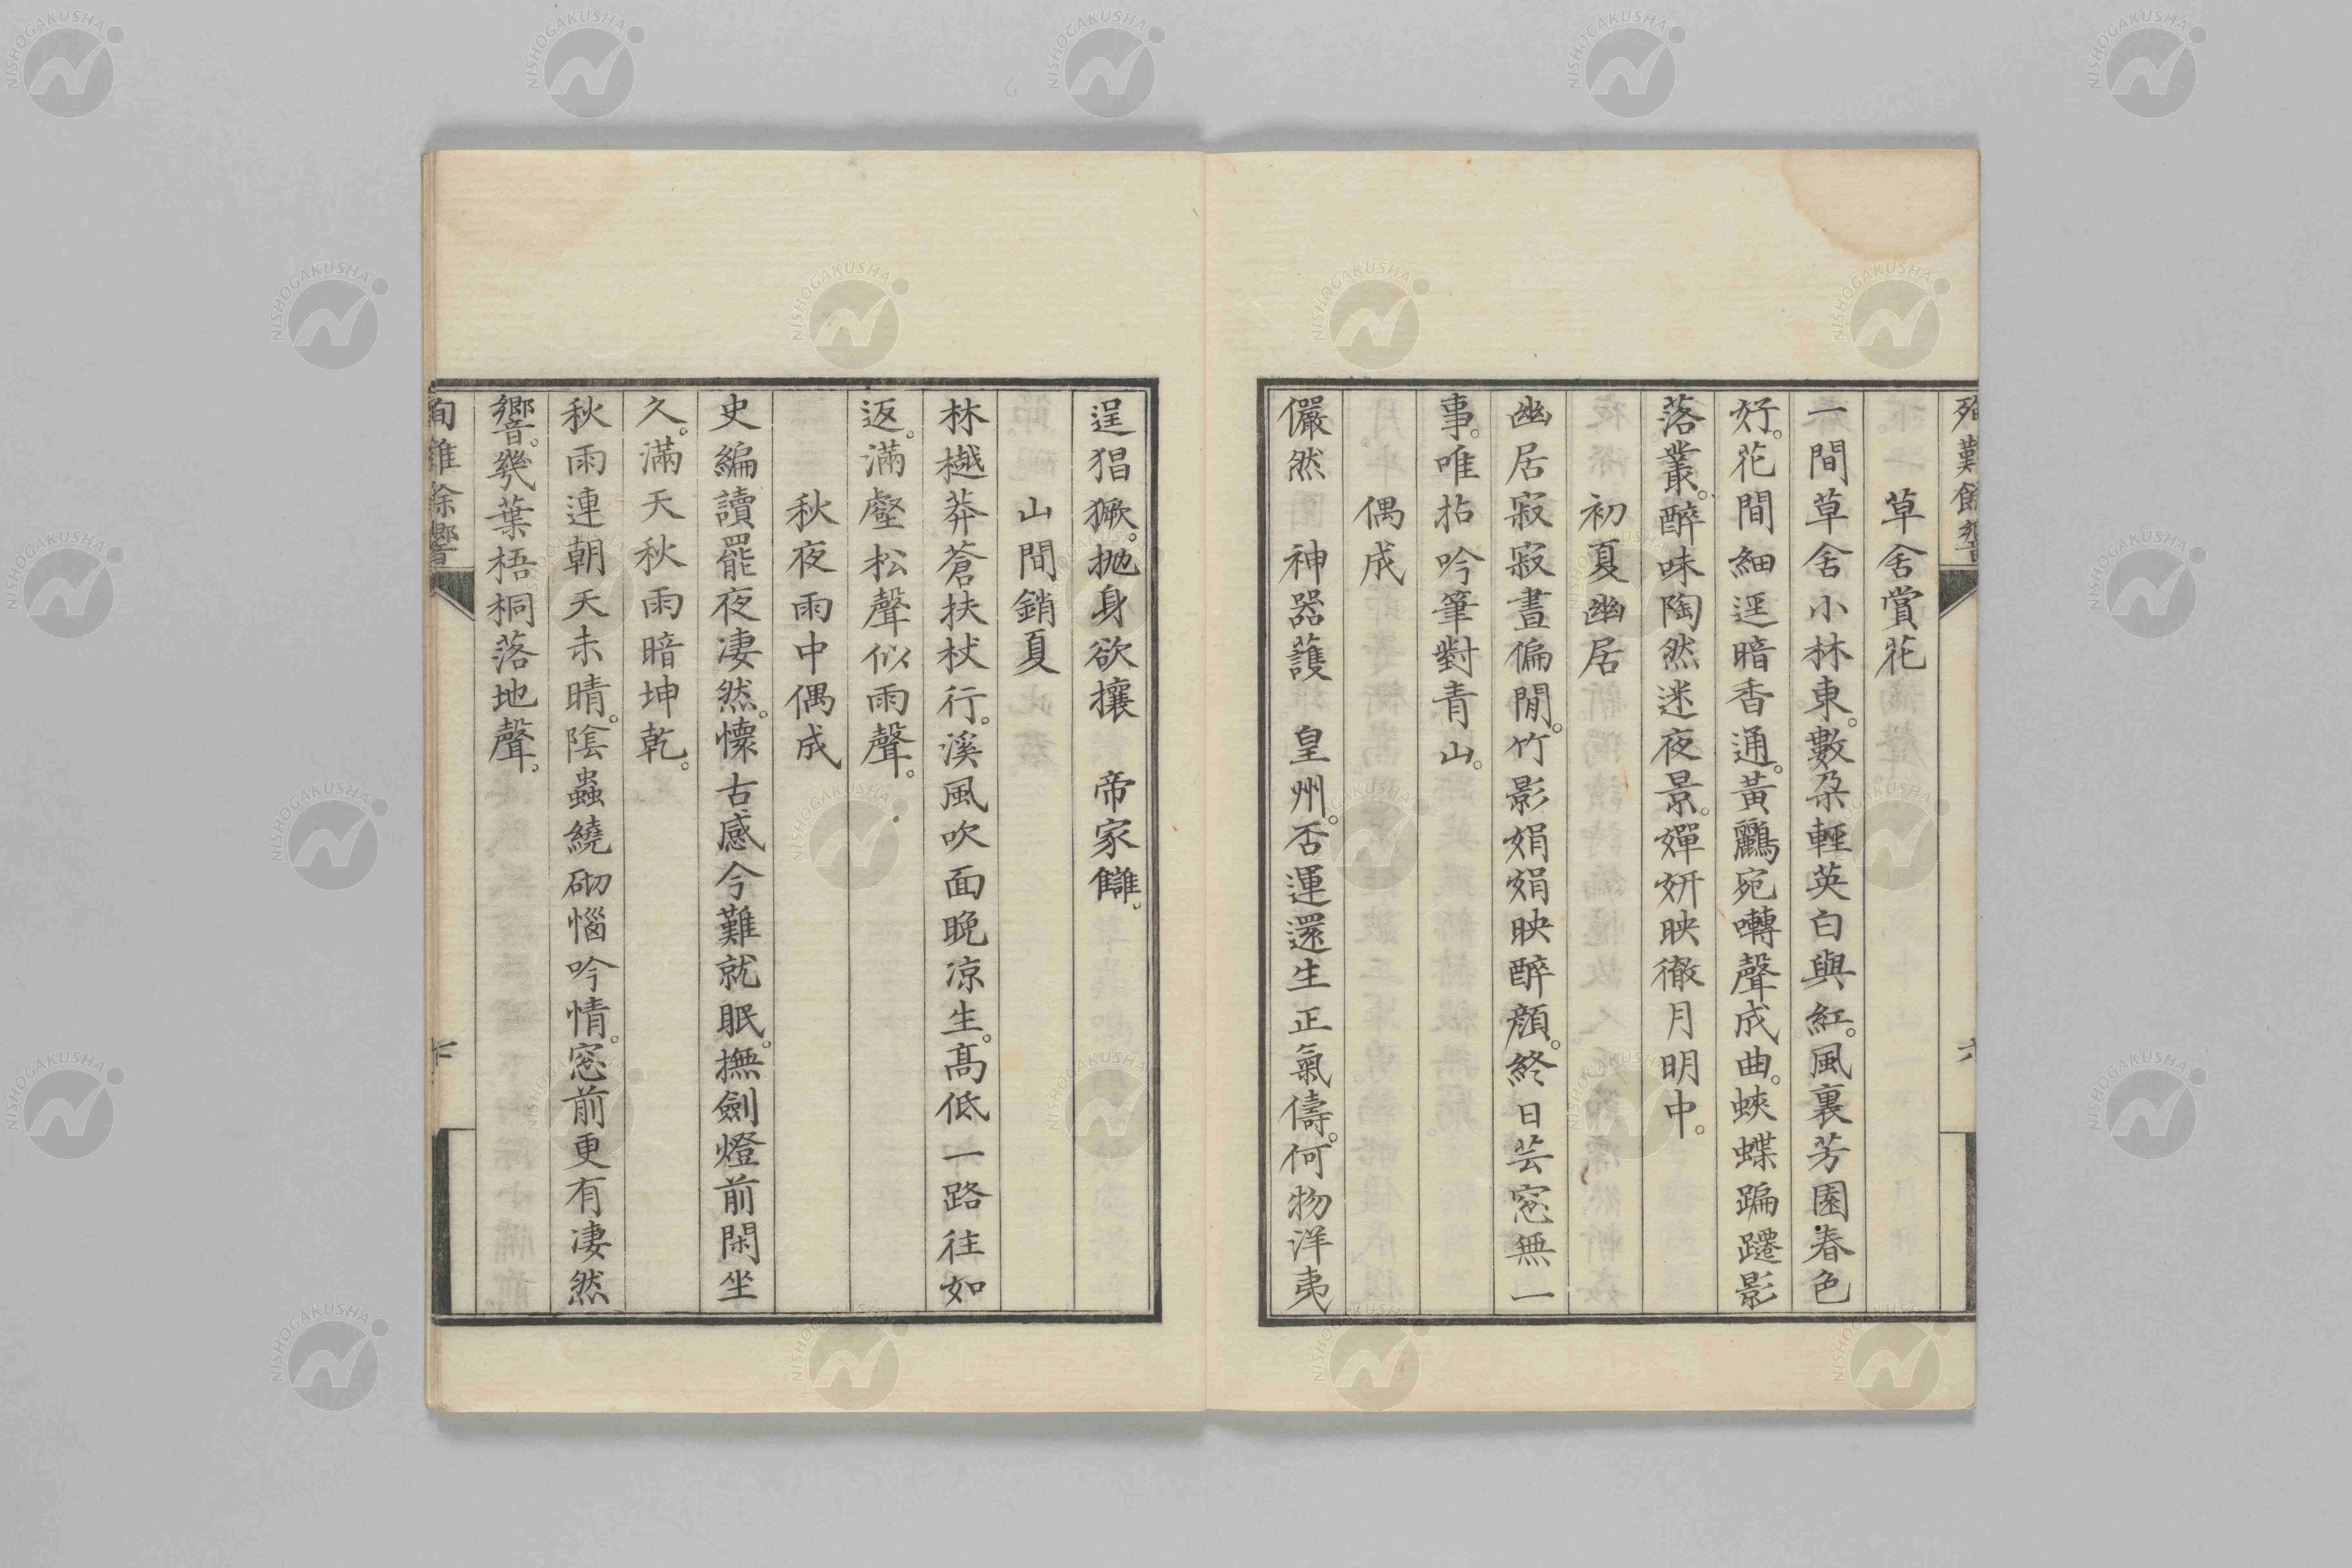 殉難餘響
六
草舍賞花
一間草舍小林東。數朶輕英白與紅。風裏芳園春色
好。花間細逕暗香通。黃鸝宛囀聲成曲。蛺蝶蹁躚影
落叢。醉味陶然迷夜景。嬋妍映徹月明中。
初夏幽居
幽居寂寂晝偏閒。竹影娟娟映醉顏。終日芸窓無一
事。唯拈吟筆對青山。
偶成
儼然 神器護 皇州。否運還生正氣儔。何物洋夷
逞猖獗。抛身欲攘 帝家讎。
山間銷夏
林樾莽蒼扶杖行。溪風吹面晚凉生。高低一路往如
返。滿壑松聲似雨聲。
秋夜雨中偶成
史編讀罷夜凄然。懷古感今難就眠。撫劍燈前閑坐
久。滿天秋雨暗坤乾。
秋雨連朝天未晴。陰蟲繞砌惱吟情。窓前更有凄然
響。幾葉梧桐落地聲。
NISHOGAKUSHA